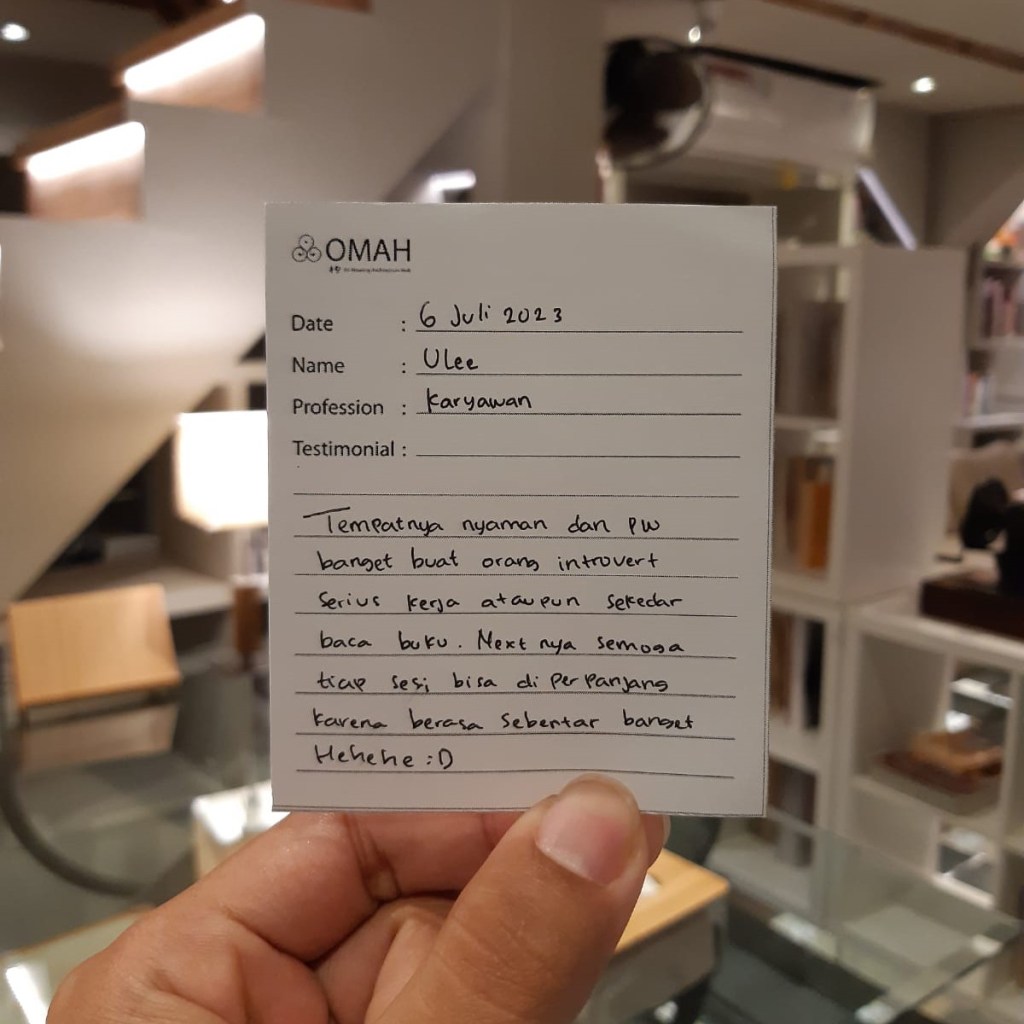 OMAH
Date : 6 Juli 2023
Name : Ulee
Profession : Karyawan
Testimonial :
Tempatnya nyaman dan PW
banget buat orang introvert
Serius kerja ataupun sekedar
baca buku. Next nya semoga
tiap sesi bisa di perpanjang
karena berasa sebentar banget
Hehehe :D